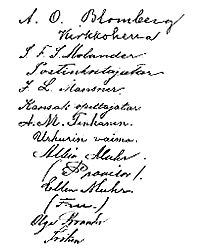 A. O. Blomberg
Kirkkoherra
J. F. S. Molander
Postinhoitajatar
J. L. Mansner
Kansak. opettajatar
A. M. Tenhunen
Urkurin vaimo.
Allin Muhr.
(Proviisor).
Ellen Muhr
(Frou)
Olga
Fröken